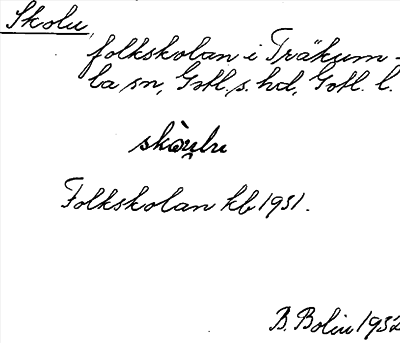 Skolu,
folkskolan i Träkum-
la sn, Gotl. s. hd, Gotl. l.
skòu̯lu
Folkskolan kb 1951.
B. Bolin 1952